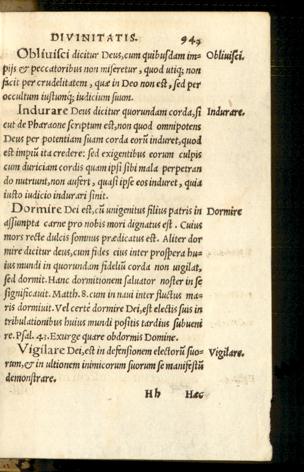 DIVINITATIS. 943
Obliuisci dicitur Deus, cum quibusdam im- Obliuisci.
pijs & peccatoribus non miseretur, quod utiq; non
facit per crudelitatem, quæ in Deo non est, sed per
occultum iustumq; iudicium suum.
Indurare Deus dicitur quorundam corda, si Indurare.
cut de Pharaone scriptum est, non quod omnipotens
Deus per potentiam suam corda eorũ induret, quod
est impiũ ita credere: sed exigentibus eorum culpis
cum duriciam cordis quam ipsi sibi mala perpetran
do nutrunt, non aufert, quasi ipse eos induret, quia
iusto iudicio indurari sinit.
Dormire Dei est, cũ unigenitus filius patris in Dormire
assumpta carne pro nobis mori dignatus est. Cuius
mors recte dulcis somnus prædicatus est. Aliter dor
mire dicitur deus, cum fides eius inter prospera hu-
ius mundi in quorundam fideliũ corda non uigilat,
sed dormit. Hanc dormitionem saluator noster in se
significauit. Matth. 8. cum in naui inter fluctus ma-
ris dormiuit. Vel certè dormire Dei, est electis suis in
tribulationibus huius mundi positis tardius subueni
re. Psal. 43. Exurge quare obdormis Domine.
Vigilare Dei, est in defensionem electorũ suo- Vigilare.
rum, & in ultionem inimicorum suorum se manifestũ
demonstrare.
Hh Hæc